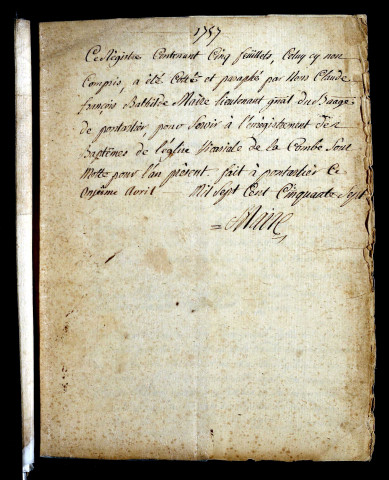 1757
Ce Régistre Contenant Cinq feuillets, Celuy cy non
Compris, a été Cotté et paraphé par Nous Claude
françois Maire lieutenant gnal du Baage
de pontarlier, pour Servir à l'enregistrement des
Baptêmes de l'eglise de la Combe Sous
Motte pour l'an présent. fait à pontarlier Ce
onzième Avril Mil Sept Cent Cinquante Sept
Maire